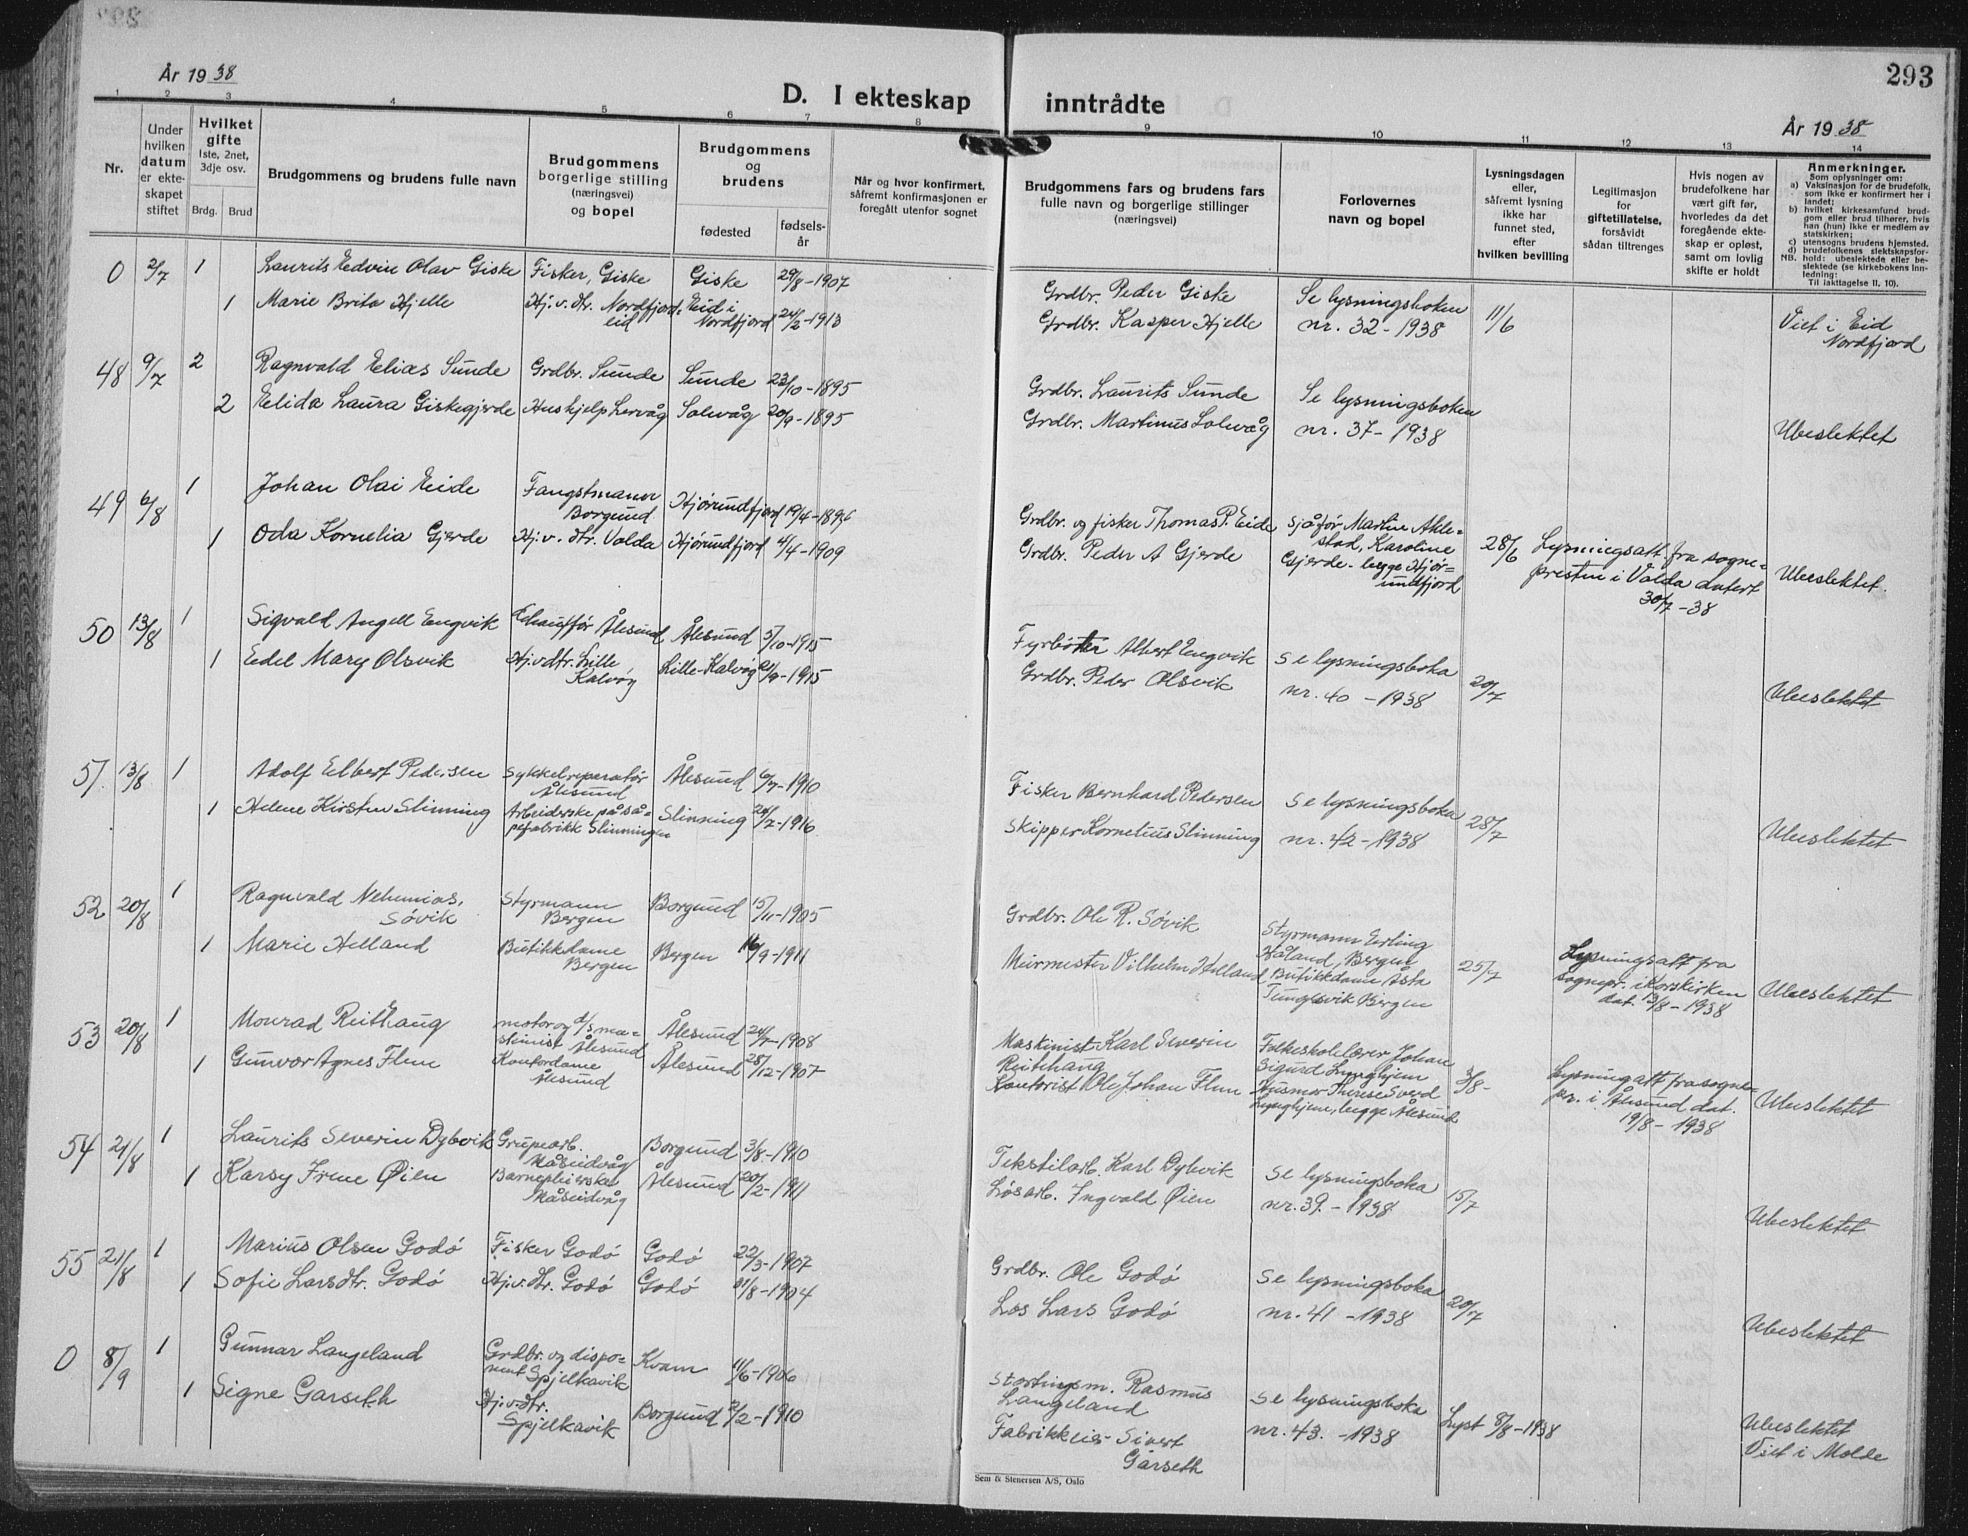 293
År 1938
D. I ekteskap inntrådte
År 1938
1 2 3 4 5 6 7 8 9 10 11 12 13 14
Nr.
Under hvilken datum er ekteskapet stiftet
Hvilket gifte
1ste, 2net, 3dje osv.
Brdg. Brud
Brudgommens og brudens fulle navn
Brudgommens borgerlige stilling (næringsvei) og bopel
Brudgommens og brudens
fødested
fødselsår
Når og hvor konfirmert, såfremt konfirmasjonen er foregått utenfor sognet
Brudgommens fars og brudens fars fulle navn og borgerlige stillinger (næringsvei)
Forlovernes navn og bopel
Lysningsdagen eller, såfremt lysning ikke har funnet sted, efter hvilken bevilling
Legitimasjon for giftetillatelse, forsåvidt sådan tiltrenges
Hvis nogen av brudefolkene har vært gift før, hvorledes da det foregående ekteskap er opløst, samt om lovlig skifte er holdt
Anmerkninger.
Som oplysninger om:
a) Vaksinasjon for de brudefolk, som ikke er konfirmert her i landet;
b) hvilket kirkesamfund brudgom eller brud tilhører, hvis han (hun) ikke er medlem av statskirken;
c) utensogns brudens hjemsted.
d) brudefolkenes slektskapsforhold: ubeslektede eller beslektede (se kirkebokens innledning:
NB.
Til iakttagelse II, 10).
0 2/7 1 Laurits Edvin Olav Giske Fisker, Giske Giske 29/8-1907 Grdbr. Peder Giske Se lysningsboken 11/6 Viet i Eid
1 Marie Brita Hjelle Hj.v. dtr. Nordfjordeid Eid i Nordfjord 24/2-1913 Grdbr. Kasper Hjelle nr. 32-1938 Nordfjord
48 9/7 2 Ragnvald Elias Sunde Grdbr. Sunde Sunde 23/10-1895 Grdbr. Laurits Sunde Se lysningsboken
2 Elida Laura Giskegjerde Hushjelp Lervåg Solevåg 20/9-1895 Grdbr. Martinus Solevåg nr. 37-1938 Ubeslektet
49 6/8 1 Johan Olai Eide Fangstmann Borgund Hjørundfjord 19/4-1896 Grdbr. og fisker Thomas P. Eide Sjåfør Martin Aklestad, Karoline 28/6 Lysningsatt. fra sogne-
1 Oda Kornelia Gjerde Hj.v. dtr. Volda Hjørundfjord 4/4-1909 Grdbr. Peder A Gjerde Gjerde - begge Hjørundfjord presten i Volda datert 30/7-38 Ubeslektet.
50 13/8 1 Sigvald Angell Engvik Chauffør Ålesund Ålesund 5/10-1915 Fyrbøter Albert Engvik Se lysningsboka 20/7
1 Edel Mary Olsvik Hj.v.dtr. Lille Kalvøy Lille-Kalvøy -1915 Grdbr. Peder Olsvik nr. 40-1938 Ubeslektet
51. 13/8 1 Adolf Elbert Pedersen Sykkelreparatør Ålesund Ålesund 6/7-1910 Fisker Bernhard Pedersen Se lysningsboka 28/7
1 Helene Kirsten Slinning Arbeiderske på såpefabrikk Slinningen Slinning 24/7-1916 Skipper Kornelius Slinning nr. 42-1938 Ubeslektet
52 20/8 1 Ragnvald Nehemias Søvik Styrmann Bergen Borgund 15/11-1905 Grdbr. Ole R. Søvik Styrmann Erling Håland, Bergen 25/7 Lysningsatt fra
1 Marie Helland Butikkdame Bergen Bergen 16/9-1911 Murmester Vilhelm Helland Butikkdame Åsta Tungesvik Bergen sognepr. i Korskirken dat. 13/8-1938 Ubeslektet
53 20/8 1 Monrad Reithaug motor og d/s maskinist Ålesund Ålesund 24/7-1908 Maskinist Karl Severin Reithaug Folkeskolelærer Johan Sigurd Lynghjem 3/8- Lysningsatt fra sogne-
1 Gunvor Agnes Flem Kontordame Ålesund Ålesund 28/12-1907 Kontorist Ole Johan Flem Husmor Therese Sverd Lynghjem, begge Ålesund pr. i Ålesund dat. 19/8-1938 Ubeslektet
54 21/8 1 Laurits Severin Dybvik Grupearb. Måseidvåg Borgund 3/8-1910 Tekstilarb. Karl Dybvik Se lysningsboka 15/7
1 Karsy Irene Øien Barnepleierske Måseidvåg Ålesund 20/2-1911 Løsarb. Ingvald Øien nr. 39.-1938 Ubeslektet
55 21/8 1 Marius Olsen Godø Fisker Godø Godø 22/3-1907 Grdbr. Ole Godø Se lysningsboka 20/7
1 Sofie Larsdtr. Godø Hj.v.dtr. Godø Godø 31/8-1904 Los Lars Godø nr. 41-1938 Ubeslektet
0 8/9 1 Gunnar Langeland Grdbr. og disponent Spjelkavik Kvam 11/6-1906 Stortingsm. Rasmus Langeland Se lysningsboka Lyst 8/8-1938 Ubeslektet
1 Signe Garseth Hj.v.dtr. Spjelkavik Borgund 2/2-1910 Fabrikkeier Sivert Garseth nr. 43.-1938 Viet i Molde
Sem & Stenersen A/S, Oslo